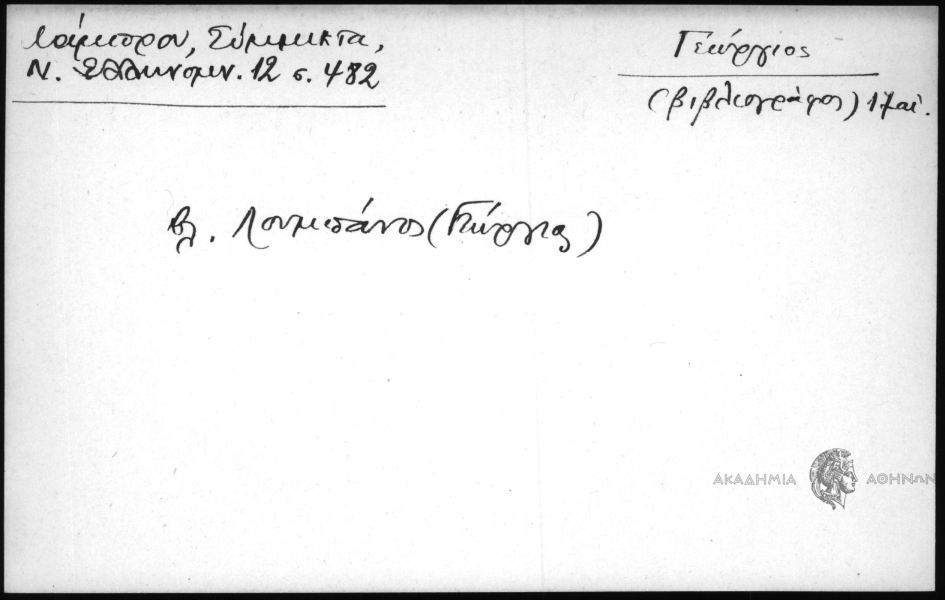 Λάμπρου, Σύμμικτα,
Ν. Ελληνομν. 12 σ. 482
Γεώργιος
(βιβλιογράφος) 17 αἰ.
Βλ. Λουμπάνος (Γεώργιος)
ΑΚΑΔΗΜΙΑ ΑΘΗΝΩΝ